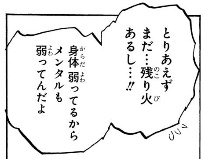 とりあえず
まだ…残り火
あるし…!!
身体弱ってるから
メンタルも
弱ってんだよ